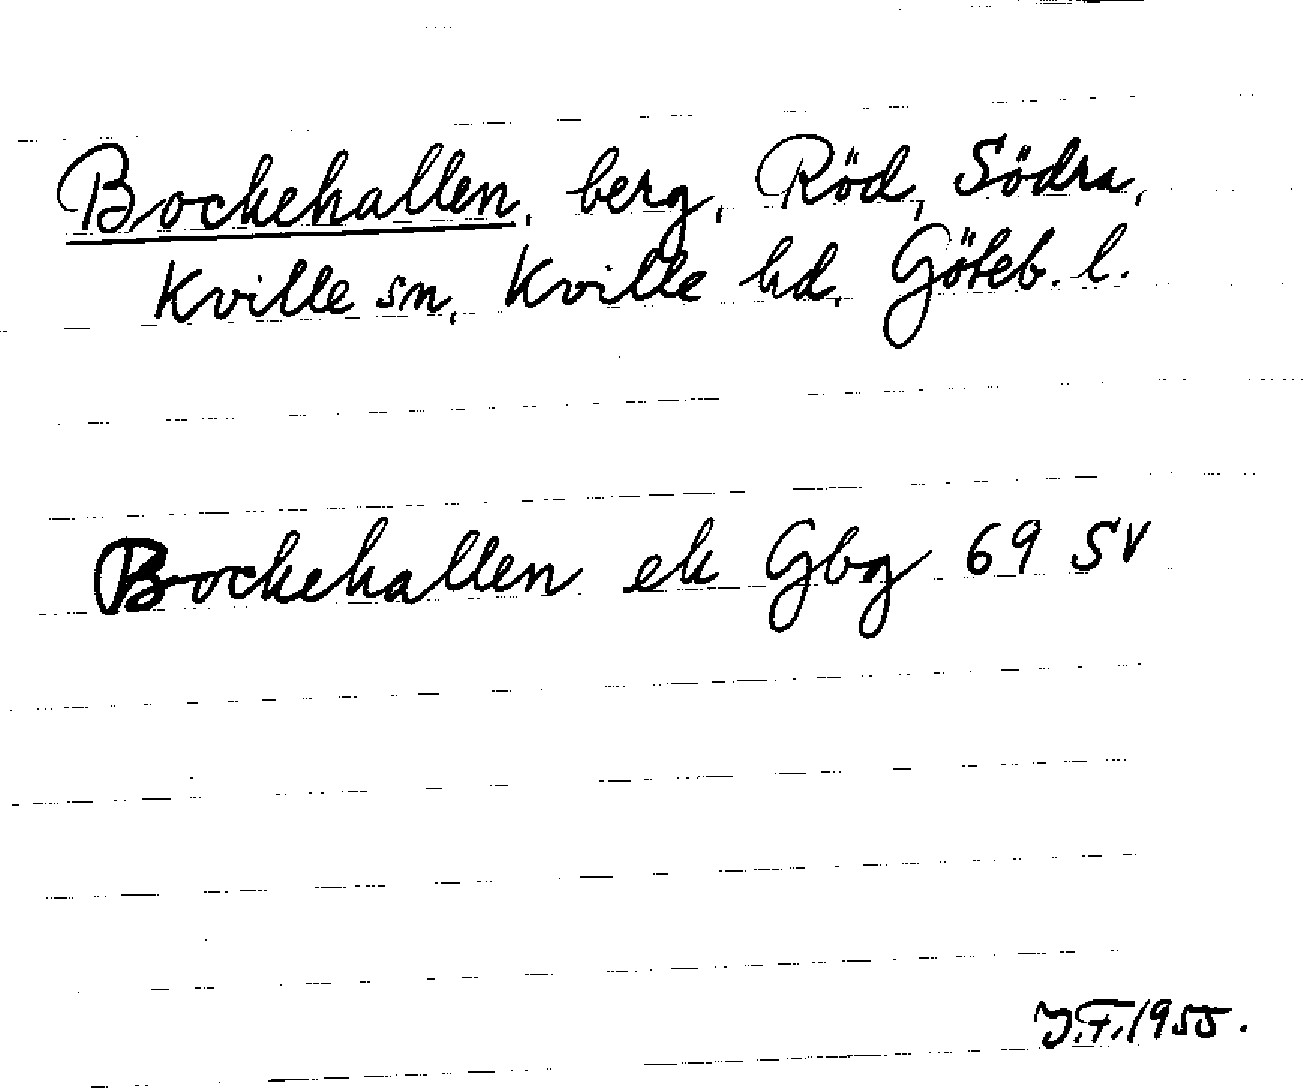 Bockehallen, berg, Röd, Södra,
Kville sn, Kville hd, Göteb. l.
Bockehallen ek Gbg 69 SV
J.F. 1955.